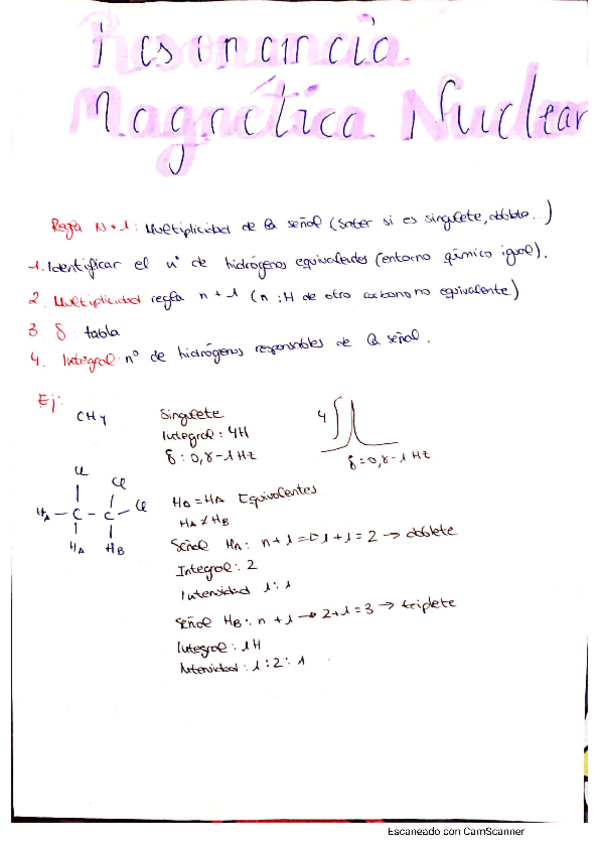 Resonancia
Magnética Nuclear
Regla N+1: Multiplicidad de la señal (saber si es singulete, doblete...)
1. Identificar el nº de hidrógenos equivalentes (entorno químico igual).
2. Multiplicidad regla n+1 (n: H de otro carbono no equivalente)
3 δ: tabla
4. Integral: nº de hidrógenos responsables de la señal.
Ej:
CH4
Singulete
Integral: 4H
δ: 0,8-1 Hz
4
δ=0,8-1 Hz
Cl Cl
HA - C - C - Cl
HA HB
HA = HA Equivalentes
HA ≠ HB
Señal HA: n+1 => 1+1=2 → doblete
Integral: 2
Intensidad 1:1
Señal HB: n+1 → 2+1=3 → triplete
Integral: 1H
Intensidad: 1:2:1
Escaneado con CamScanner